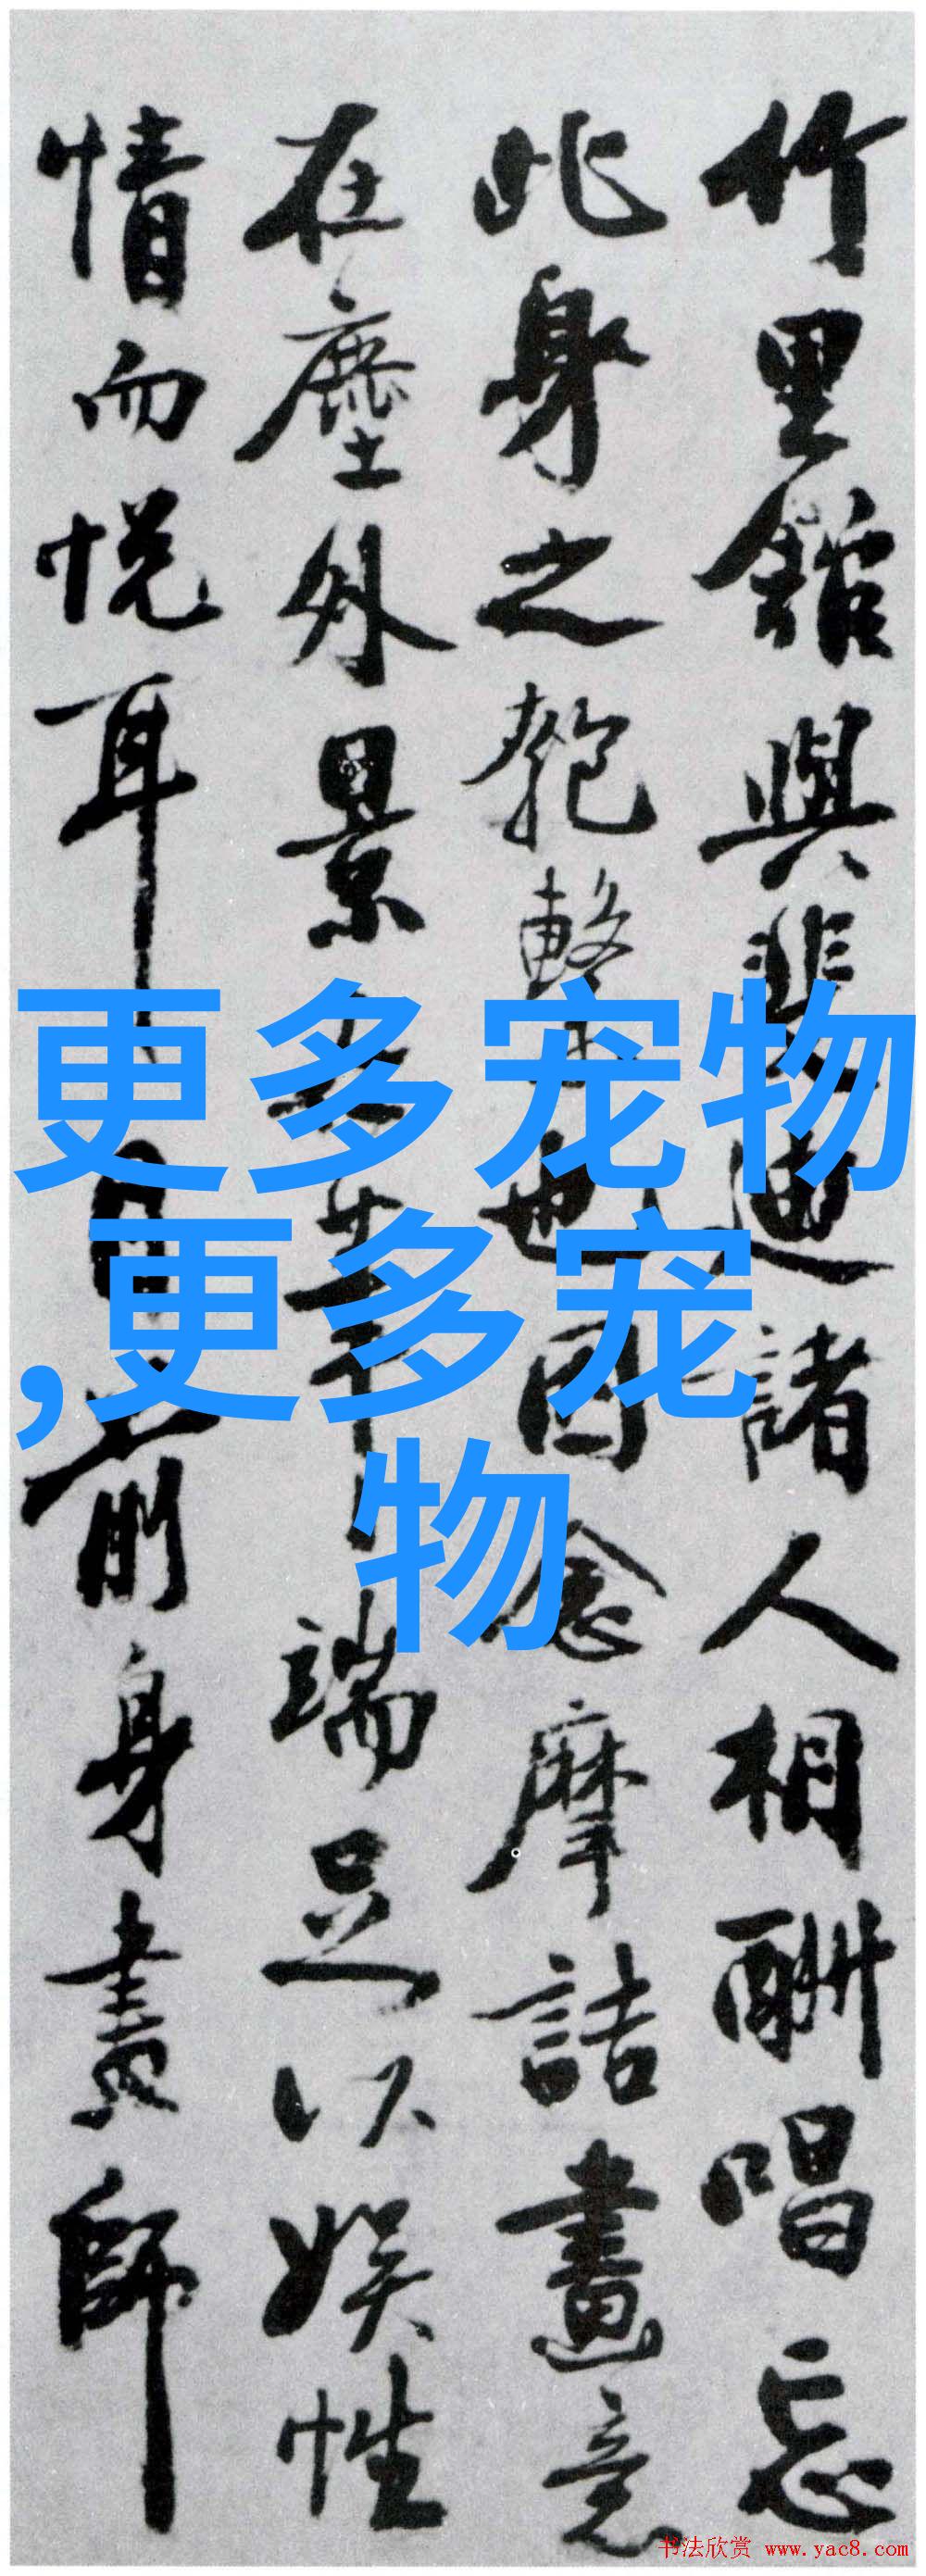 竹里館與裴迪諸人相酬唱忘
此身之匏繫也因念摩詰畫意
在塵外景
端足以娛性
情而悅耳目前身畫師
更多宠物
,更多宠
物
书法欣赏 www.yac8.com